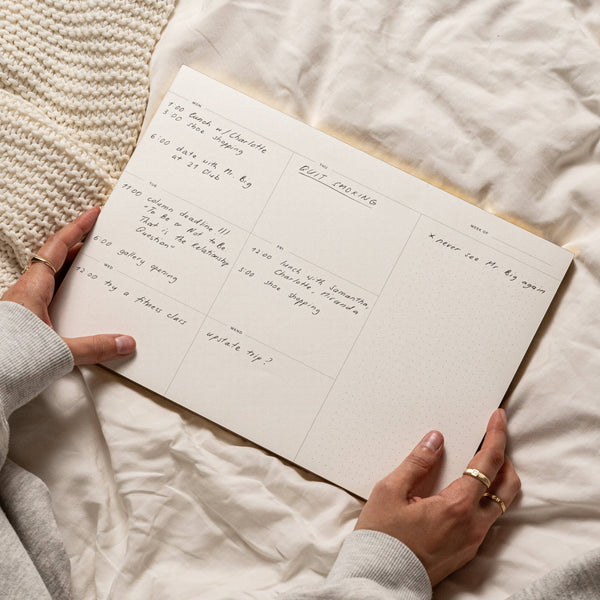 MON
1:00 lunch w/ Charlotte
3:00 shoe shopping
6:00 date with Mr. Big
at 21 Club
TUE
11:00 column deadline !!!
"To Be or Not to Be,
That is the Relationship
Question"
6:00 gallery opening
WED
12:00 try a fitness class
THU
QUIT SMOKING
FRI
12:00 lunch with Samantha,
Charlotte, Miranda
3:00 shoe shopping
WKND
upstate trip?
WEEK OF
x never see Mr. Big again